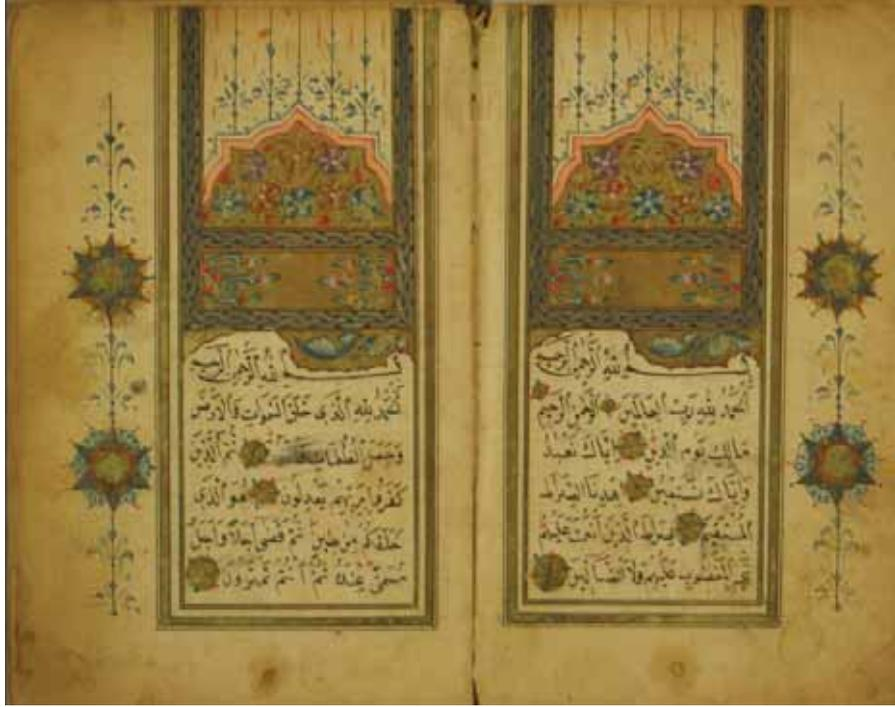 بسم الله الرحمن الرحيم
الحمد لله رب العالمين الرحمن الرحيم
مالك يوم الدين اياك نعبد
واياك نستعين اهدنا الصراط
المستقيم صراط الذين انعمت عليهم
غير المغضوب عليهم ولا الضالين
بسم الله الرحمن الرحيم
الحمد لله الذى خلق السموات والارض
وجعل الظلمات ثم الذين
كفروا بربهم يعدلون هو الذى
خلقكم من طين ثم قضى اجلا واجل
مسمى عنده ثم انتم تمترون